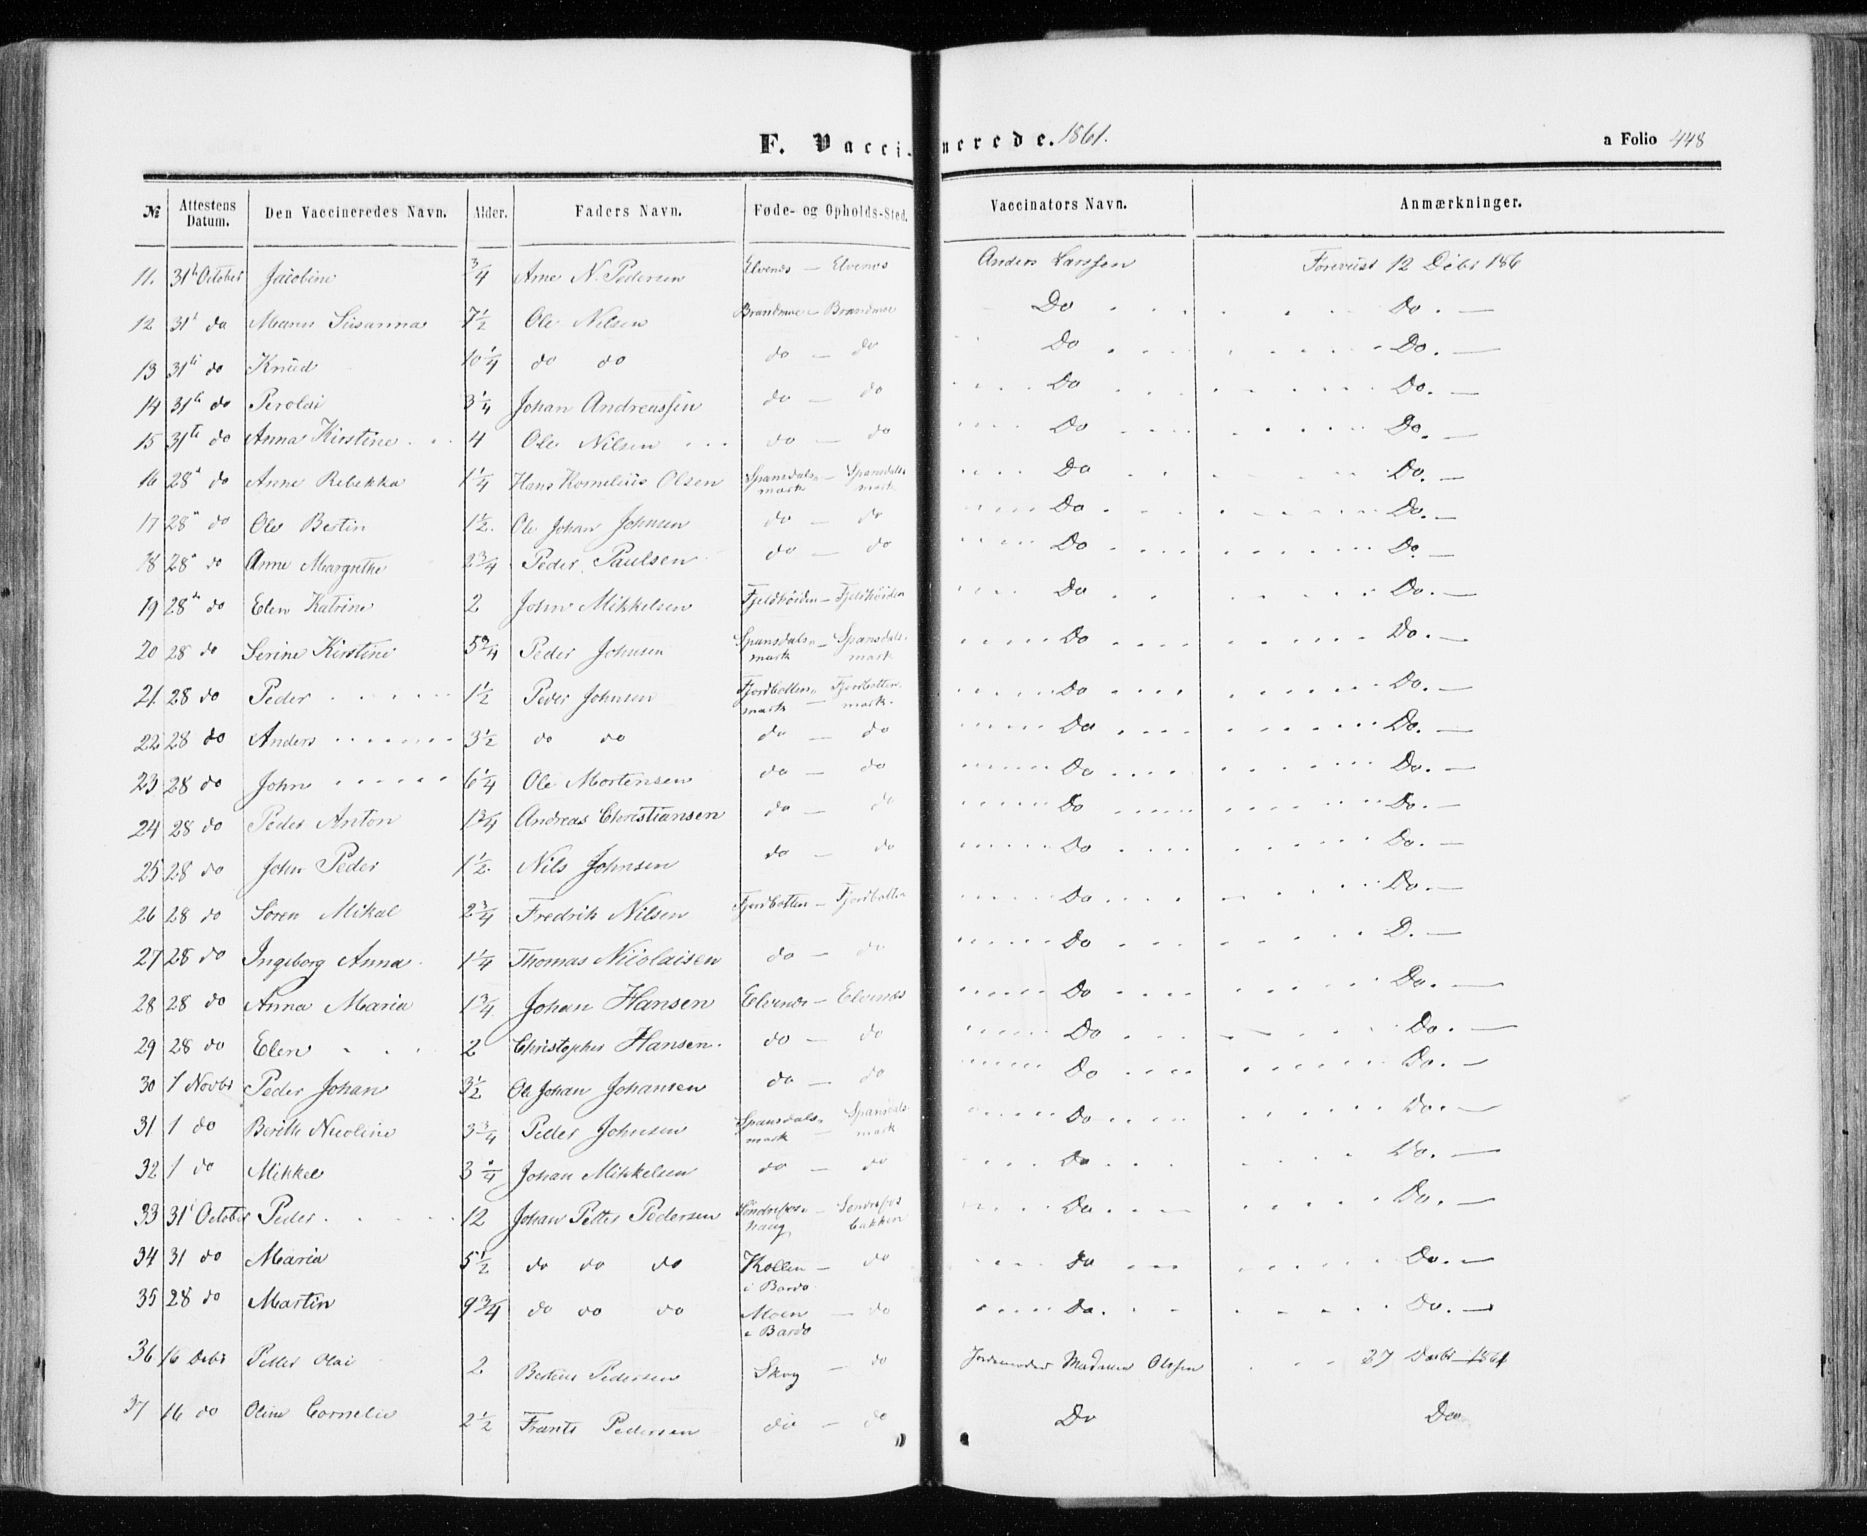 F. Vaccinerede. 1861.
a Folio 448
№ Attestens Datum. Den Vaccineredes Navn. Alder. Faders Navn. Føde- og Opholds-Sted. Vaccinators Navn. Anmærkninger.
11. 31te October Jacobine 3/4 Arne N. Pedersen Elvenes — Elvenes Anders Larssen Forevist 12 Debr 186
12 31t do Maren Susanna 7 1/2 Ole Nilsen Brandmoe - Brandmoe Do Do. —
13 31te do Knud 10 1/4 do do do — do Do Do. —
14 31te do Perolai 3 1/4 Johan Andreassen do — do Do Do. —
15 31te do Anna Kirstine 4 Ole Nilsen do — do Do Do. —
16 28 do Anne Rebekka 1 1/4 Hans Kornelius Olsen Spansdals- mark — Spansdals- mark Do Do. —
17 28 do Ole Bertin 1 1/2. Ole Johan Johnsen do — do Do Do. —
18 28 do Anne Margrethe 2 3/4 Peder Paulsen do — do Do Do. —
19 28 do Elen Katrine 2 John Mikkelsen Fjeldhøiden — Fjeldhøiden Do Do. —
20 28 do Serine Kirstine 5 3/4 Peder Johnsen Spansdals- mark — Spansdals- mark Do Do. —
21. 28 do Peder 1 1/2 Peder Johnsen Fjordbotten- mark — Fjordbotten- mark. Do Do. —
22 28 do Anders 3 1/2 do do do — do Do Do. —
23 28 do John 6 1/4 Ole Mortensen do — do Do Do. —
24 28 do Peder Anton 1 3/4 Andreas Christiansen do — do Do Do. —
25 28 do John Peder 1 1/2. Nils Johnsen do — do Do Do. —
26 28 do Søren Mikal 2 3/4 Fredrik Nilsen Fjordbotten — Fjordbotten Do Do. —
27 28 do Ingeborg Anna 1 1/4 Thomas Nicolaisen do — do Do D. —
28 28 do Anna Maria 1 3/4 Johan Hansen Elvenes — Elvenes Do Do. —
29 28 do Elen 2 Christopher Hansen. do — do Do Do. —
30 1 Novbr Peder Johan 3 1/2 Ole Johan Johansen do — do Do Do. —
31 1 do Berith Nicoline 3 3/4 Peder Johnsen Spansdals- mark — Spansdals- mark Do Do. —
32 1 do Mikkel 3 /4 Johan Mikkelsen do — do Do Do. —
33 31t October Peder 12 Johan Petter Pedersen Søndrefos- haug — Søndrefos bakken Do Do. —
34 31 do Maria 5 1/2 do do do Kollen i Bardo — do Do Do. —
35 28 do Martin 9 3/4 do do do Moen i Bardo — do Do. Do. —
36 16 Debr Petter Olai 2 Pedersen Skog — do Jordemoder Madame Olsen 27 Decbr 1861
37 16 do Oline Cornelie 2 1/2 Frants Pedersen do — do Do Do